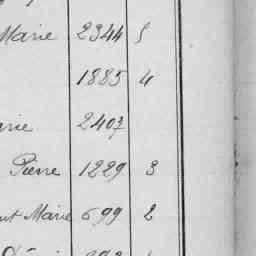 Marie 2344 5
1885 4
2407
Pierre 1229 3
Marie 699 2